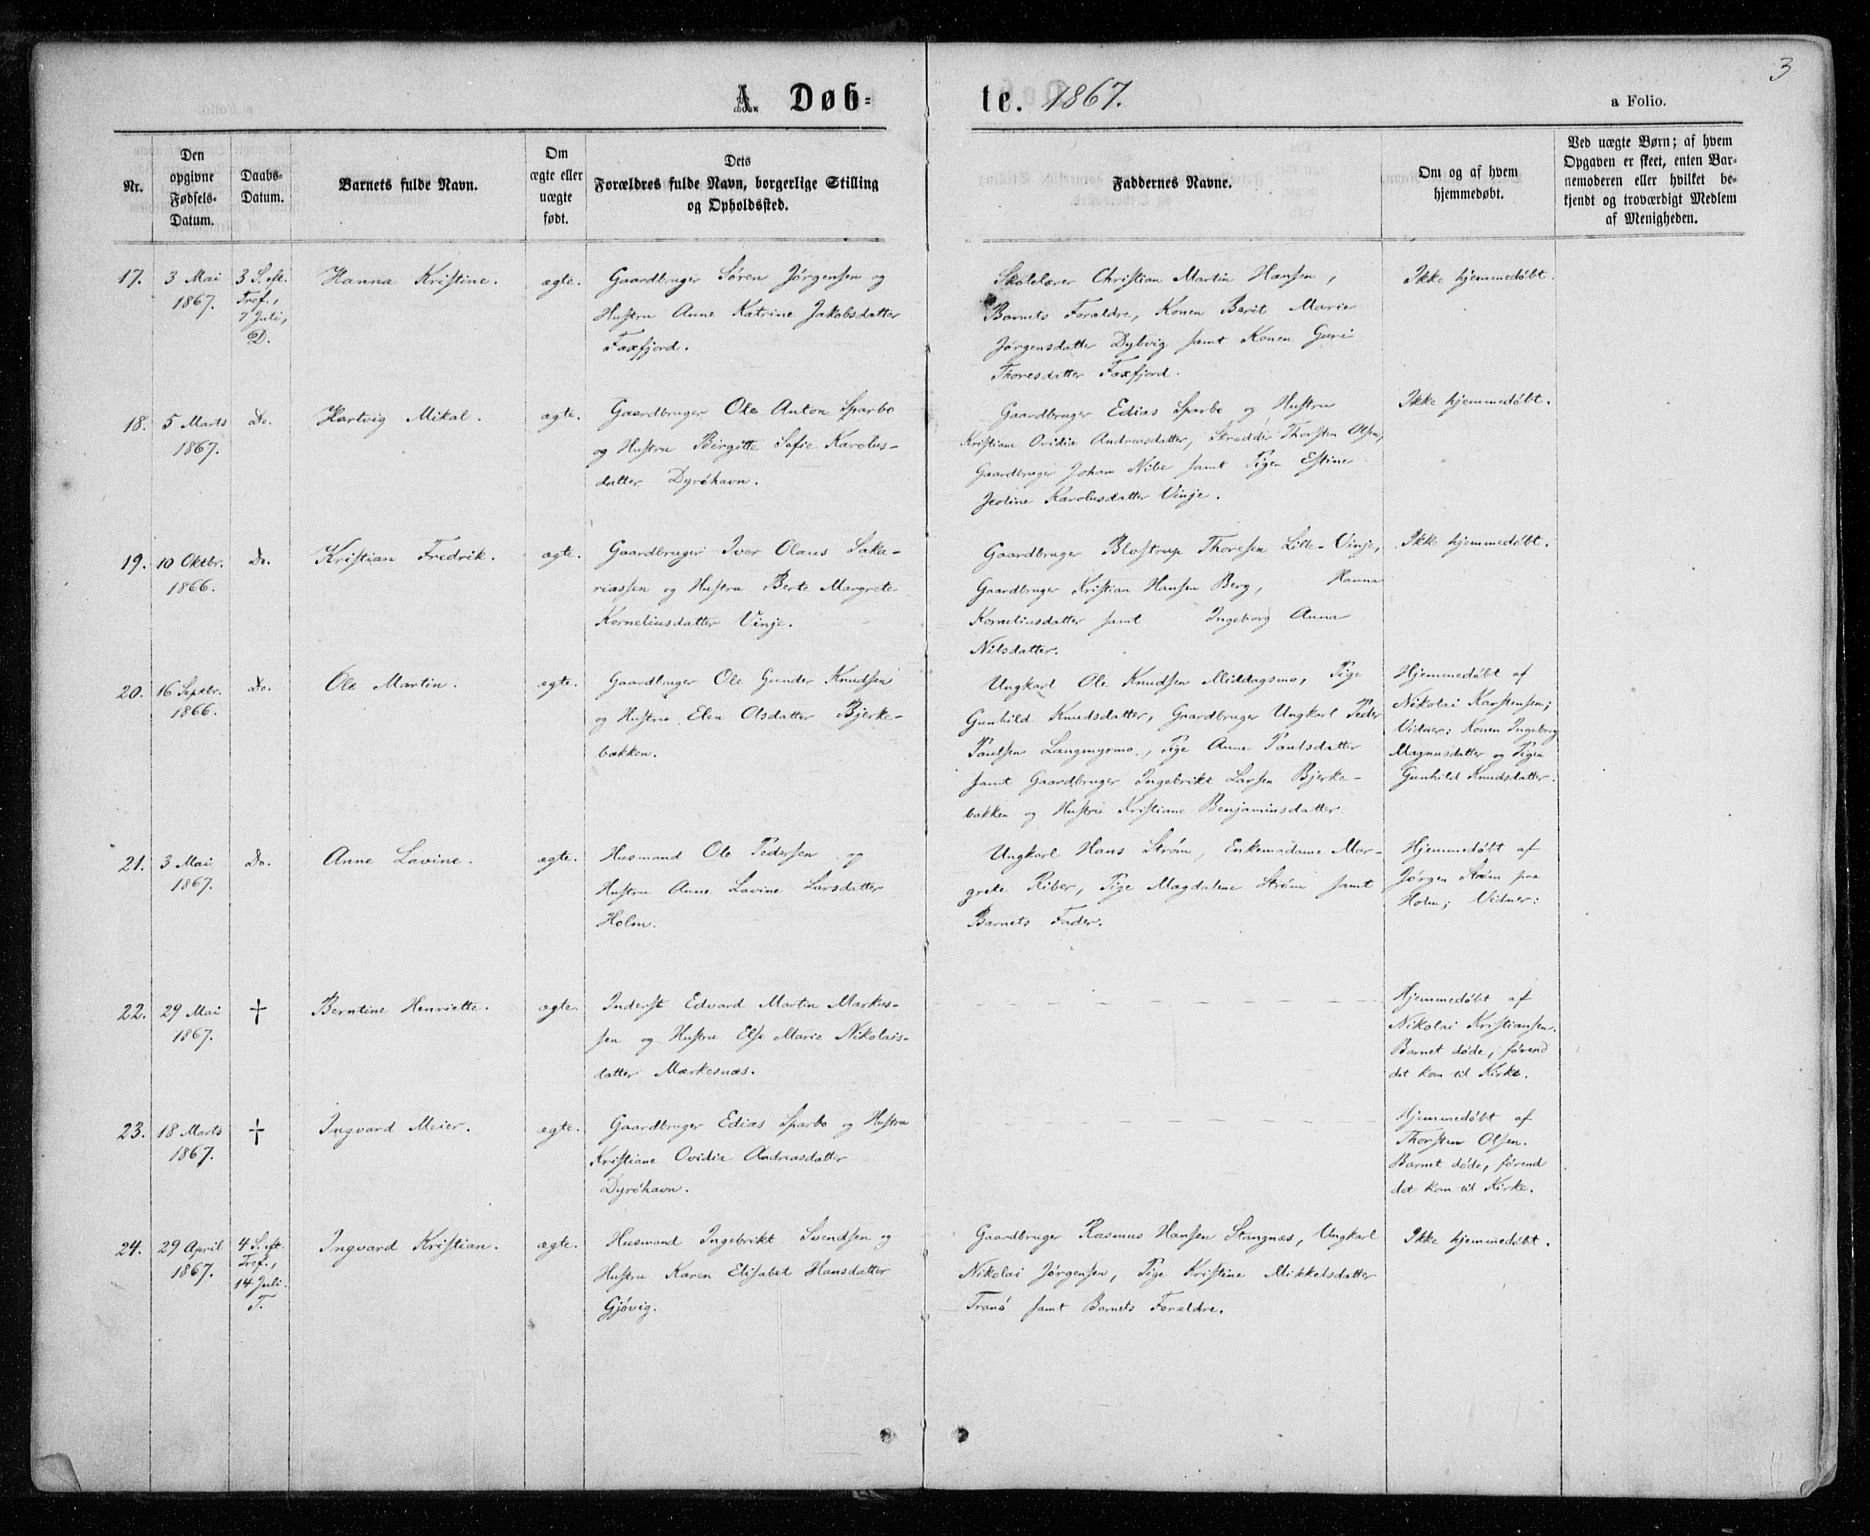 3
A. Døb-
te. 1867.
a Folio.
Nr.
Den
opgivne
Fødsels-
Datum.
Daabs-
Datum.
Barnets fulde Navn.
Om
ægte eller
uægte
født.
Dets
Forældres fulde Navn, borgerlige Stilling
og Opholdssted.
Faddernes Navne.
Om og af hvem
hjemmedøbt.
Ved uægte Børn; af hvem
Opgaven er skeet, enten Bar-
nemoderen eller hvilket be-
kjendt og troværdigt Medlem
af Menigheden.
17.
3 Mai
1867.
3 S. eft.
Tref.,
7 Juli,
D.
Hanna Kristine.
ægte.
Gaardbruger Søren Jørgensen og
Hustru Anne Katrine Jakobsdatter
Faxfjord.
Skolelærer Christian Martin Hansen,
Barnets Forældre, Konen Berit Marie
Jørgensdatter Dybvig samt Konen Guri
Thoresdatter Faxfjord.
Ikke hjemmedøbt.
18.
5 Marts
1867.
Do.
Hartvig Mikal.
ægte.
Gaardbruger Ole Anton Sparbo
og Hustru Birgitte Sofie Karolus-
datter Dyröhavn.
Gaardbruger Edias Sparbo og Hustru
Kristian Ovidie Andreasdatter, Skrædder Thorsten Olsen,
Gaardbruger Johan Nibe samt Pigen Estine
Jeoline Karolusdatter Vinje.
Ikke hjemmedøbt.
19.
10 Oktbr.
1866.
Do.
Kristian Fredrik.
ægte.
Gaardbruger Iver Olaus Saka-
riassen og Hustru Berte Margrete
Korneliusdatter Vinje.
Gaardbruger Blostrup Thoresen Lille-Vinje,
Gaardbruger Kristian Hansen Berg, Hanna
Korneliusdatter samt Ingeborg Anna
Nilsdatter.
Ikke hjemmedøbt.
20.
16 Septbr.
1866.
Do.
Ole Martin.
ægte.
Gaardbruger Ole Gunder Knudsen
og Hustru Elen Olsdatter Bjerke-
bakken.
Ungkarl Ole Knudsen Middagsmo, Pige
Gunhild Knudsdatter, Gaardbruger Ungkarl Peder
Paulsen Langmyrmo, Pige Anne Paulsdatter
samt Gaardbruger Ingebrikt Larsen Bjerke-
bakken og Hustru Kristiane Benjaminsdatter
Hjemmedøbt af
Nikolai Karstensen;
Vidner: Konen Ingeborg
Magnusdatter og Pigen
Gunhild Knudsdatter.
21.
3 Mai
1867.
Do.
Anne Lavine.
ægte.
Husmand Ole Pedersen og
Hustru Anne Lavine Larsdatter
Holm.
Ungkarl Hans Strøm, Enkemadame Mar-
grete Riber, Pige Magdalene Strøm samt
Barnets Fader.
Hjemmedøbt af
Jørgen Strøm paa
Holm; Vidner:
22.
29 Mai
1867.
†
Berntine Henriette.
ægte.
Inderst Edvard Martin Markus-
sen og Hustru Else Marie Nikolais-
datter Mærkesnæs.
Hjemmedøbt af
Nikolai Kristiansen.
Barnet døde, førend
det kom til Kirke.
23.
18 Marts
1867.
†
Ingvard Meier.
ægte.
Gaardbruger Edias Sparbo og Hustru
Kristiane Ovidia Andreasdatter
Dyröhavn.
Hjemmedøbt af
Thorsten Olsen.
Barnet døde, førend
det kom til Kirke.
24.
29 April
1867.
4 S. eft.
Tref.,
14 Juli.
T.
Ingvard Kristian.
ægte.
Husmand Ingebrikt Svendsen og
Hustru Karen Elisabet Hansdatter
Gjövig.
Gaardbruger Rasmus Hansen Stangnæs, Ungkarl
Nikolai Jørgensen, Pige Kristine Mikkelsdatter
Tranö samt Barnets Forældre.
Ikke hjemmedøbt.